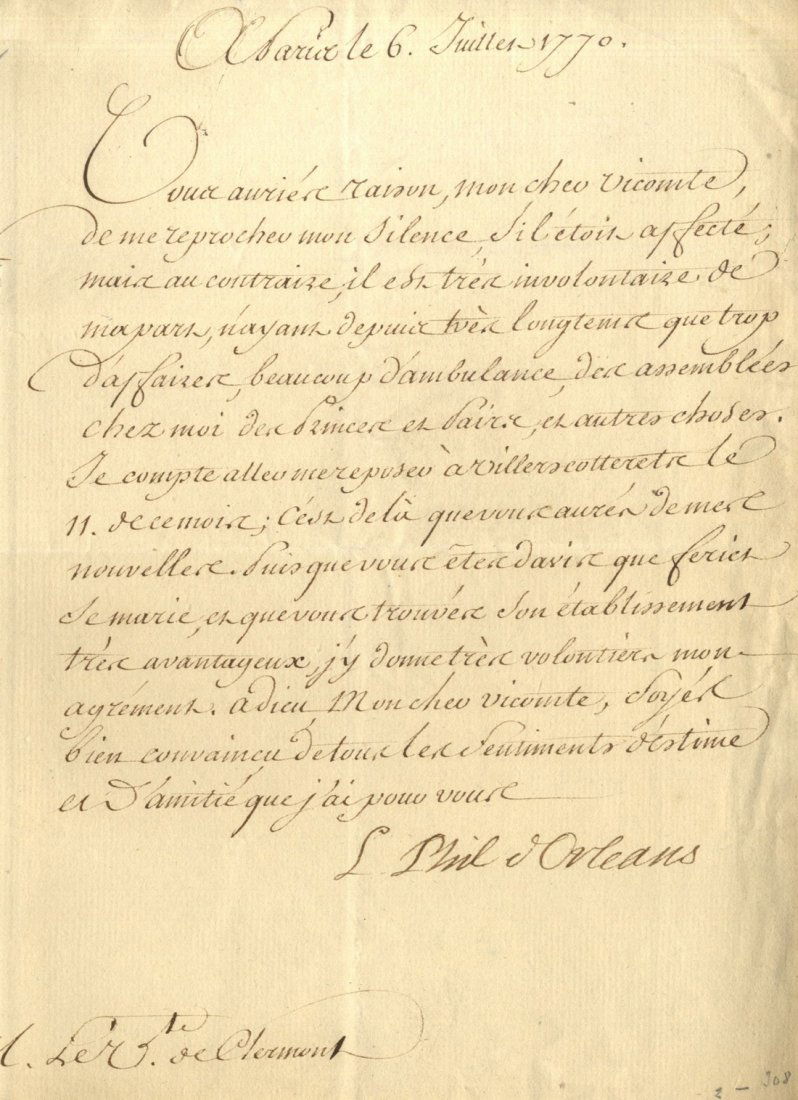 A Paris le 6. Juillet 1770.
Vous auriés raison, mon cher Vicomte,
de me reprocher mon silence, s'il étoit affecté;
mais au contraire, il est très involontaire de
ma part, n'ayant depuis très longtems que trop
d'affaires, beaucoup d'ambulance, des assemblées
chez moi des Princes et Pairs, et autres choses.
Je compte aller me reposer à Villerscotterets le
11. de ce mois; c'est de là que vous aurés de mes
nouvelles. Puisque vous êtes d'avis que feriet
se marie, et que vous trouvés son établissement
très avantageux, j'y donne très volontiers mon
agrément. adieu Mon cher vicomte, soyés
bien convaincu de tous les sentiments d'estime
et D'amitié que j'ai pour vous
L Phil d'Orleans
M. Le V.te de Clermont
2 - 308